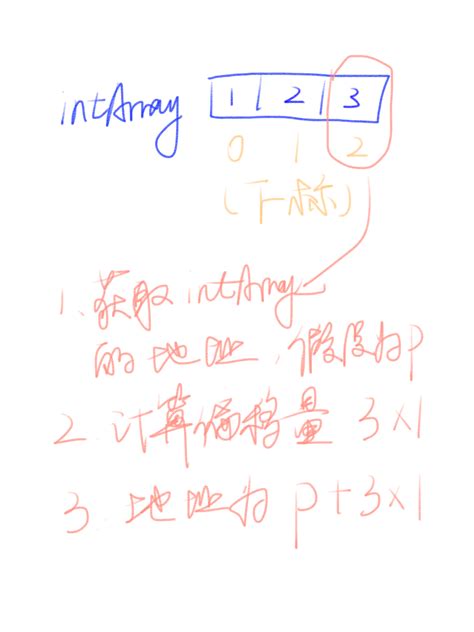 intArray 1 2 3
0 1 2
(下标)
1.获取intArray
的地址,假设为p
2.计算偏移量 3×1
3.地址为 p+3×1